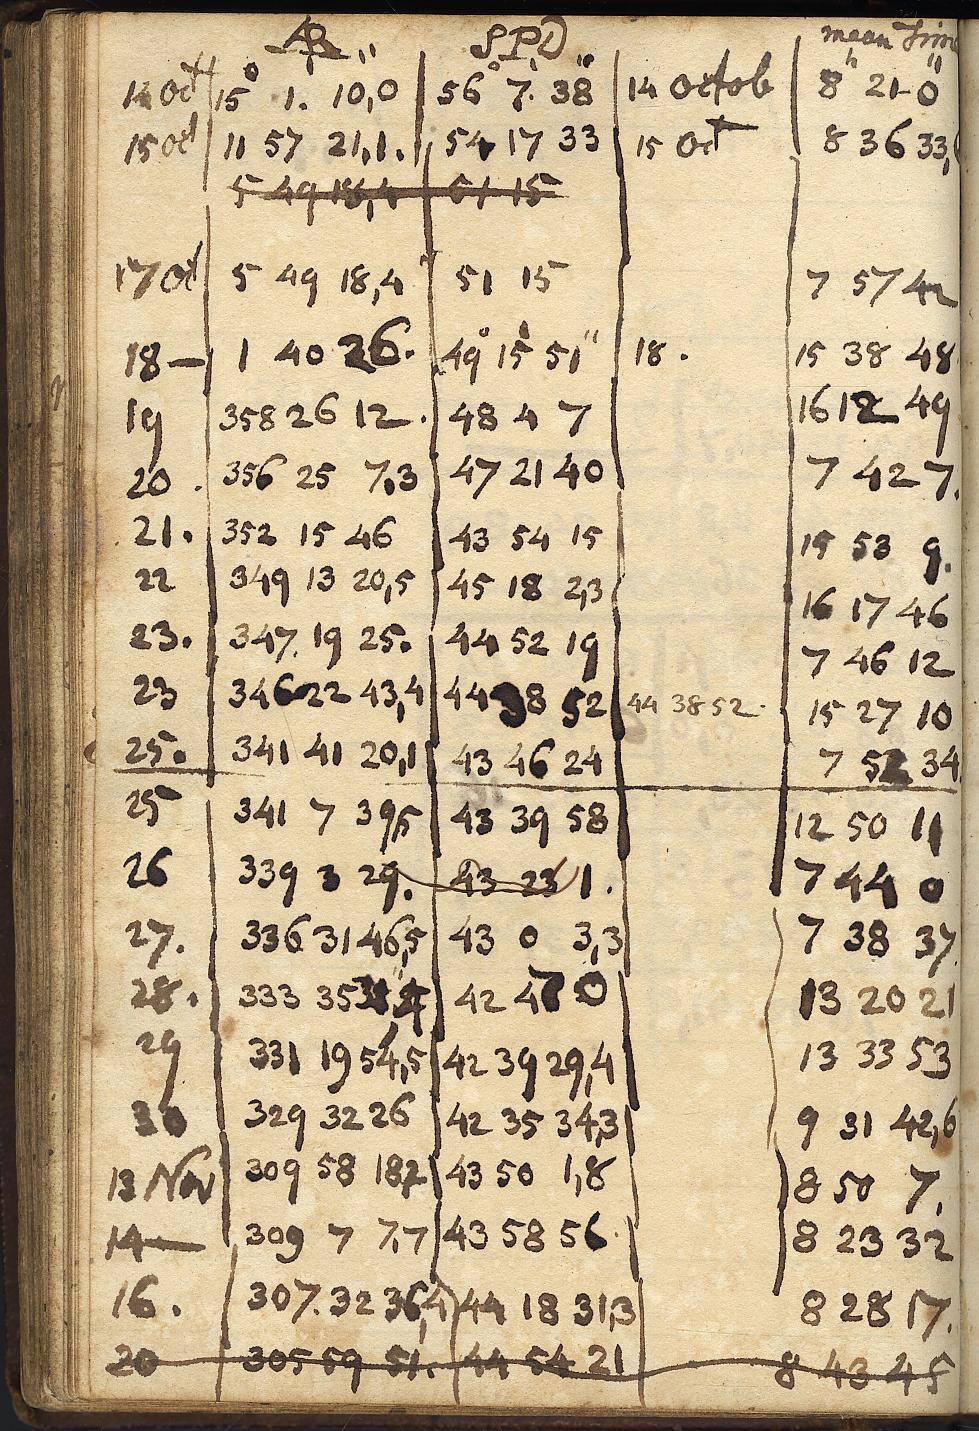 AR S.P.D mean Time
14 Oct 15° 1. 10,0" 56° 7.' 38" 14 Octob 8h 21 0"
15 Oct 11 57 21,1. 54 17 33 15 Oct 8 36 33,
5 49 18,4 51 15
17 Oct 5 49 18,4 51 15 7 57 42
18 — 1 40 26. 49° 15' 51" 18. 15 38 48
19 358 26 12. 48 4 7 16 12 49
20. 356 25 7,3 47 21 40 7 42 7.
21. 352 15 46 43 54 15 15 53 9.
22 349 13 20,5 45 18 2,3 16 17 46
23. 347. 19 25. 44 52 19 7 46 12
23 346 22 43,4 44 38 52 44 38 52. 15 27 10
25. 341 41 20,1 43 46 24 7 52 34
25 341 7 39,5 43 39 58 12 50 11
26 339 3 29. 43 23 1. 7 44 0
27. 336 31 46,5 43 0 3,3 7 38 37
28. 333 35 42 47 0 13 20 21
29 331 19 54,5 42 39 29,4 13 33 53
30 329 32 26 42 35 34,3 9 31 42,6
13 Nov 309 58 18,2 43 50 1,8 8 50 7,
14 — 309 7 7,7 43 58 56. 8 23 32
16. 307. 32 36,4 44 18 31,3 8 28 17.
20 305 59 51. 44 54 21 8 43 45